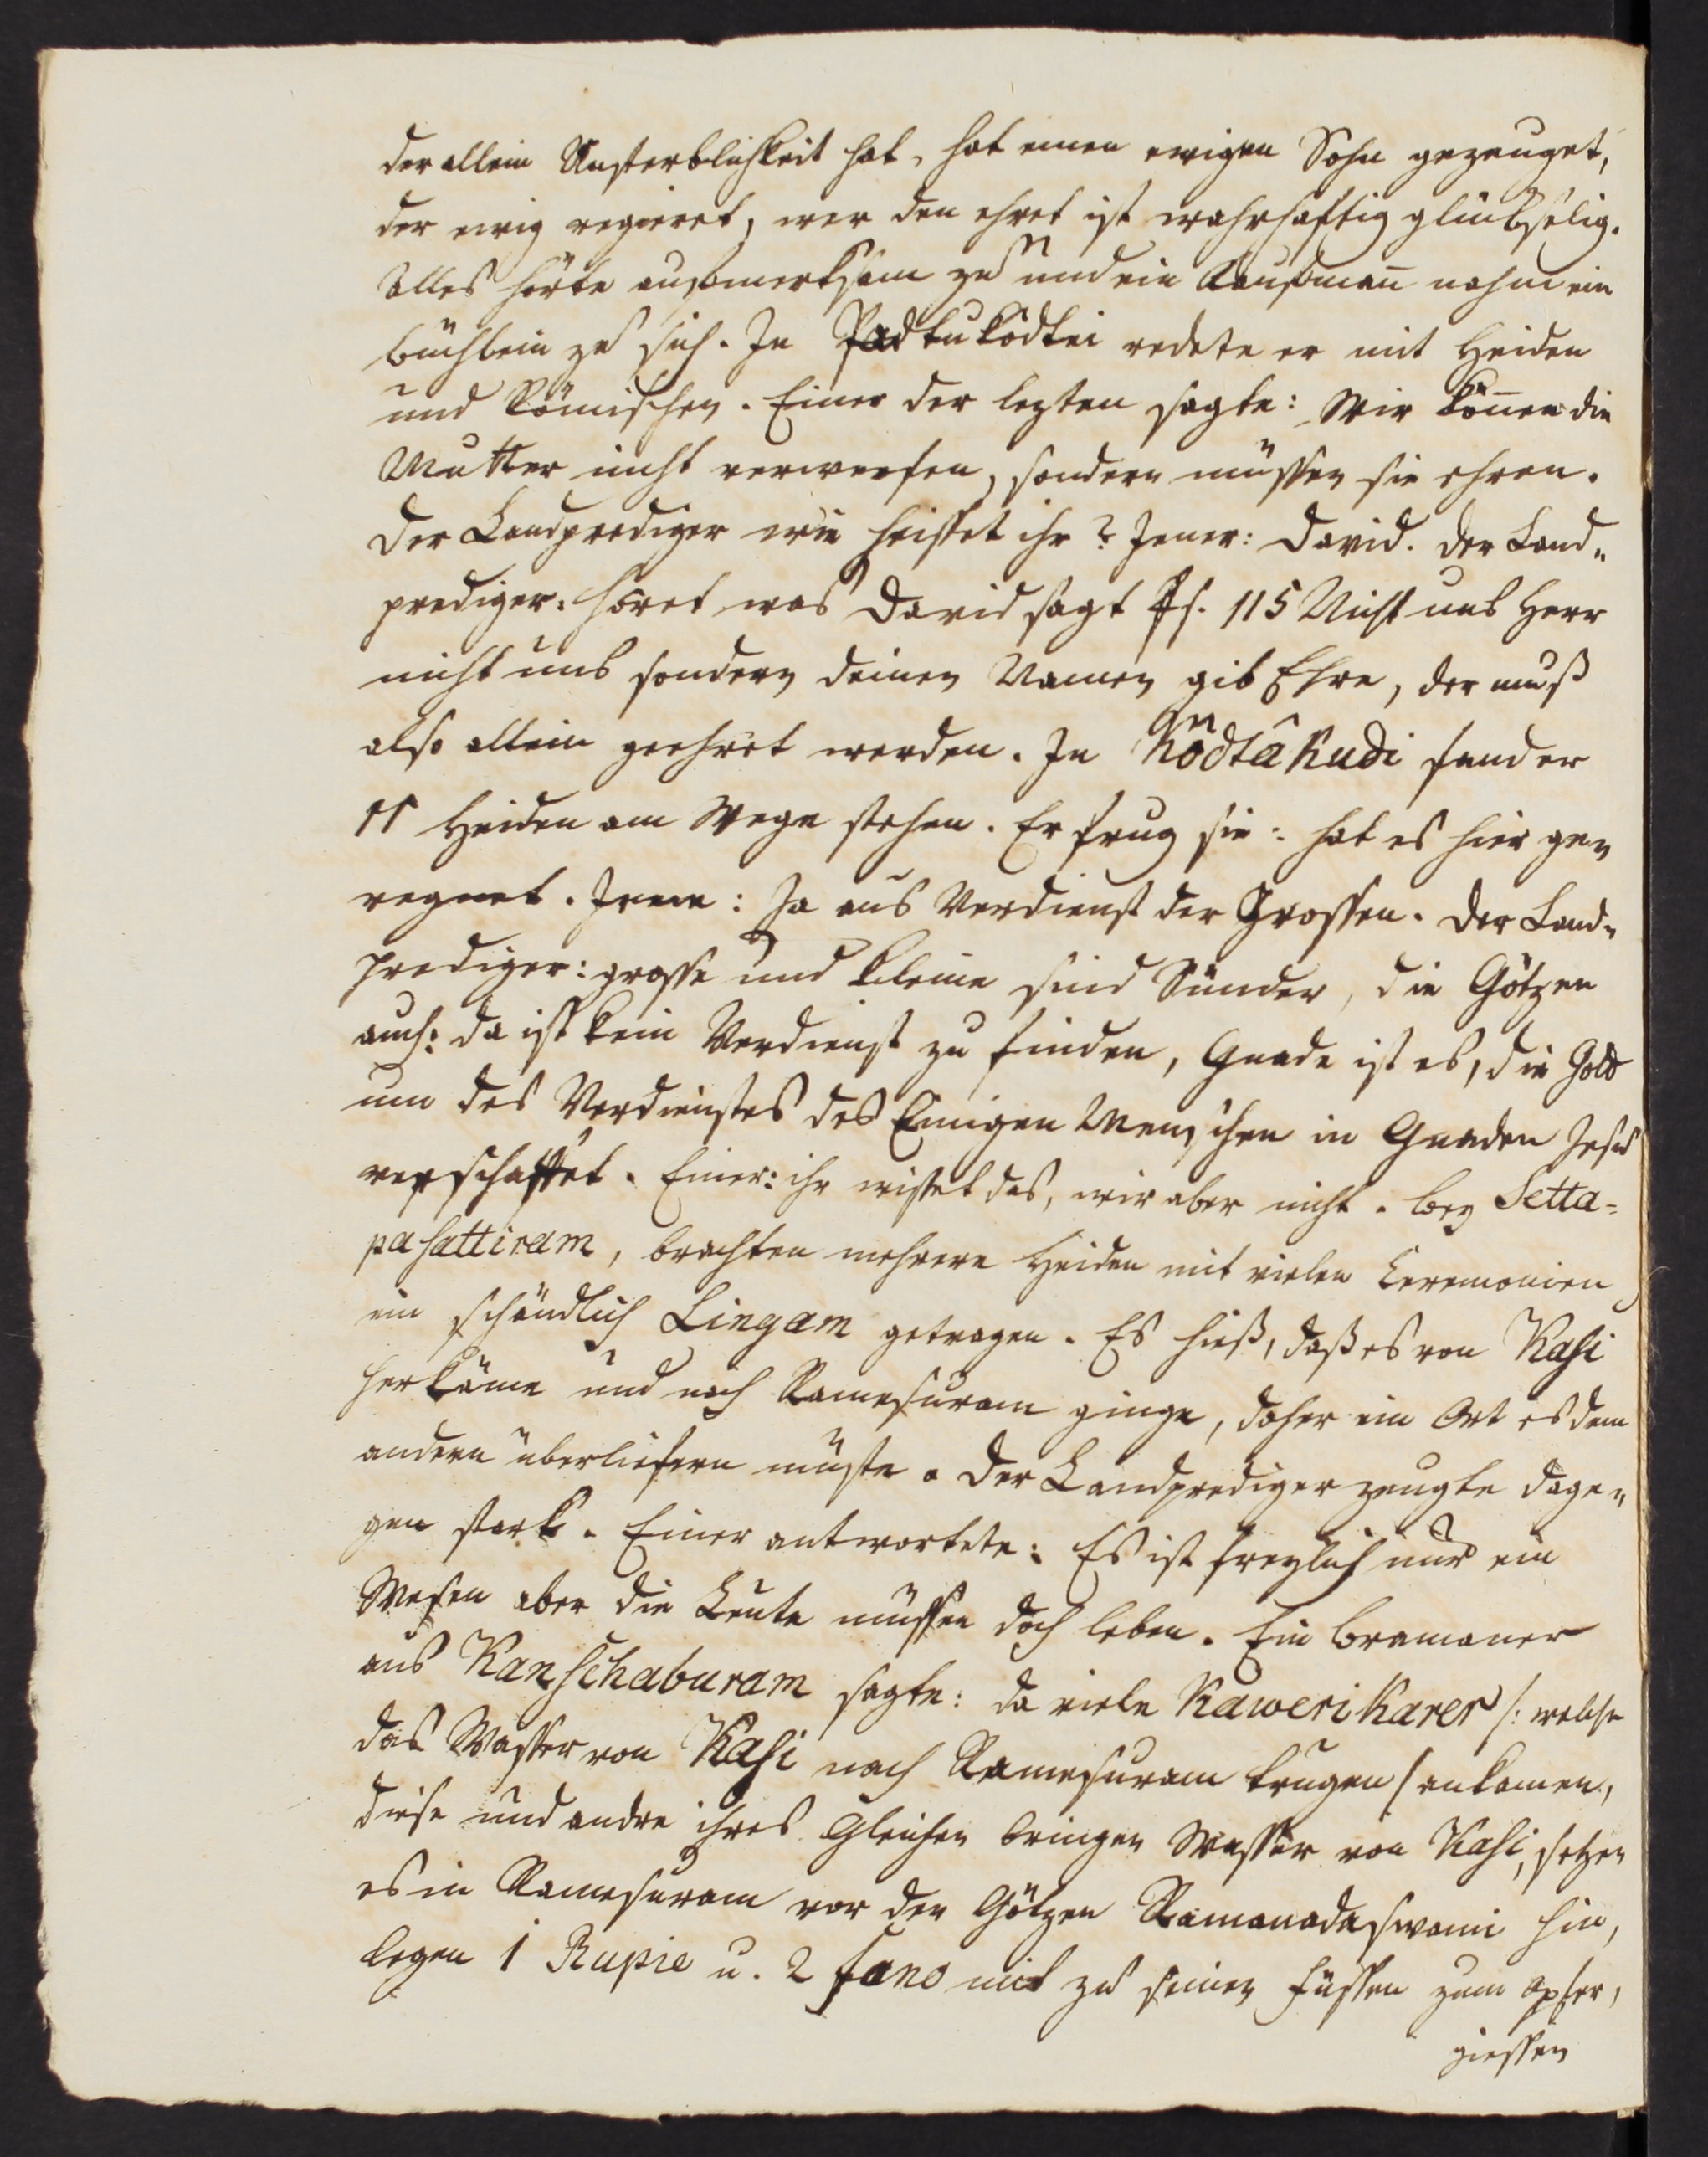 der allein Unsterblichkeit hat, hat einen ewigen Sohn gezeuget,
der ewig regieret, wer den ehret ist wahrhaftig glückselig.
Alles hörte aufmerksam zu und ein Kaufman̄ nahm ein
büchlein zu sich. In Padtukôdtei redete er mit Heiden
und Römischen. Einer der lezten sagte: Wir kön̄en die
Mutter nicht verwerfen, sondern müssen sie ehren.
Der Landprediger wie heisset ihr? Jener: David. Der Land„
prediger: höret was David sagt Ps. 115 Nicht uns Herr
nicht uns sondern deinen Namen gib Ehre, der muß
also allein geehret werden. In Kôdtâkudi fand er
11 Heiden am Wege stehen. Er frug sie: hat es hier ge„
regnet. Jene: Ja aus Verdienst der Grossen. Der Land„
prediger: grosse und kleine sind Sünder, die Götzen
auch: da ist kein Verdienst zu finden, Gnade ist es, die Gott
um des Verdienstes des Einigen Menschen in Gnaden Jesus
verschaffet. Einer: ihr wisset das, wir aber nicht. bey Setta=
pasattiram, brachten mehrere Heiden mit vielen Ceremonien
ein schändlich Lingam getragen. Es hieß, daß es von Kasi
herkäme und nach Ramesuram ginge, daher ein Ort es dem
andern überliefern müste. Der Landprediger zeugte dage„
gen stark. Einer antwortete: Es ist freylich nur ein
Wesen aber die Leute müssen doch leben. Ein bramaner
aus Kanschaburam sagte: da viele Kawerikarer /: welche
das Wasser von Kasi nach Ramesuram trugen / ankamen,
diese und andre ihres Gleichen bringen Wasser von Kasi, setzen
es in Ramesuram vor den Götzen Ramanadaswami hin,
legen 1 Rupie u. 2 fano mit zu seinen Füssen zum Opfer,
giessen